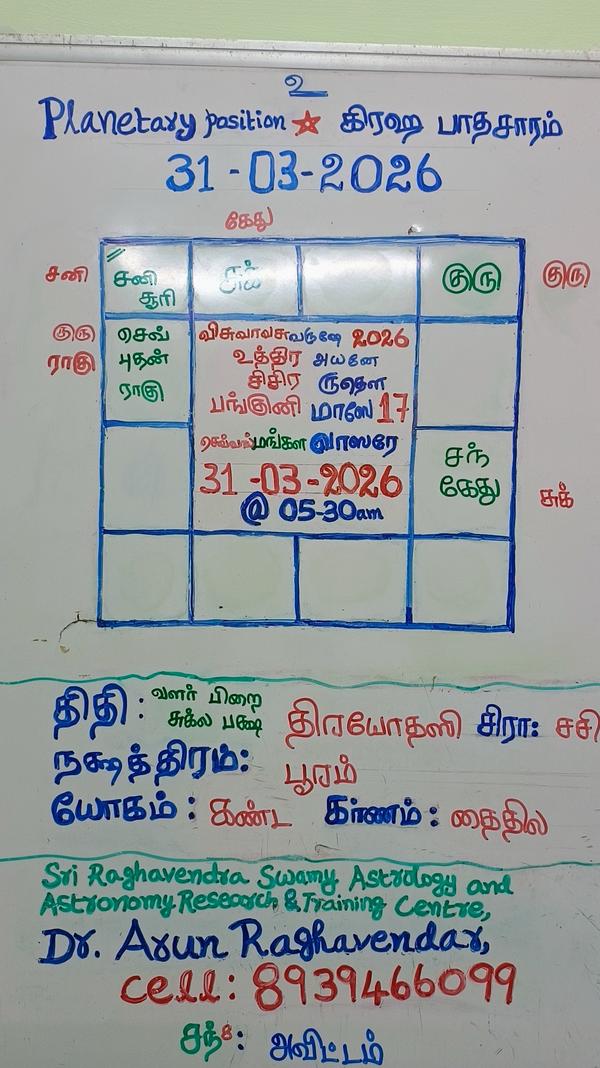 உ
Planetary position ☆ கிரஹ பாதசாரம்
31-03-2026
கேது
சனி
சனி
சூரி
சுக்
குரு
குரு
குரு
ராகு
செவ்
புதன்
ராகு
விசுவாவசுவருஷே 2026
உத்திர அயனே
சிசிர ருதௌ
பங்குனி மாஸே 17
செவ்வாய்மங்கள வாஸரே
31-03-2026
@ 05-30am
சந்
கேது
சுக்
திதி: வளர் பிறை
சுக்ல பக்ஷ திரயோதஸி சிரா: சசி
நக்ஷத்திரம்: பூரம்
யோகம்: கண்ட கரணம்: தைதில
Sri Raghavendra Swamy Astrology and
Astronomy Research & Training Centre,
Dr. Arun Raghavendar,
cell: 8939466099
சந்8: அவிட்டம்